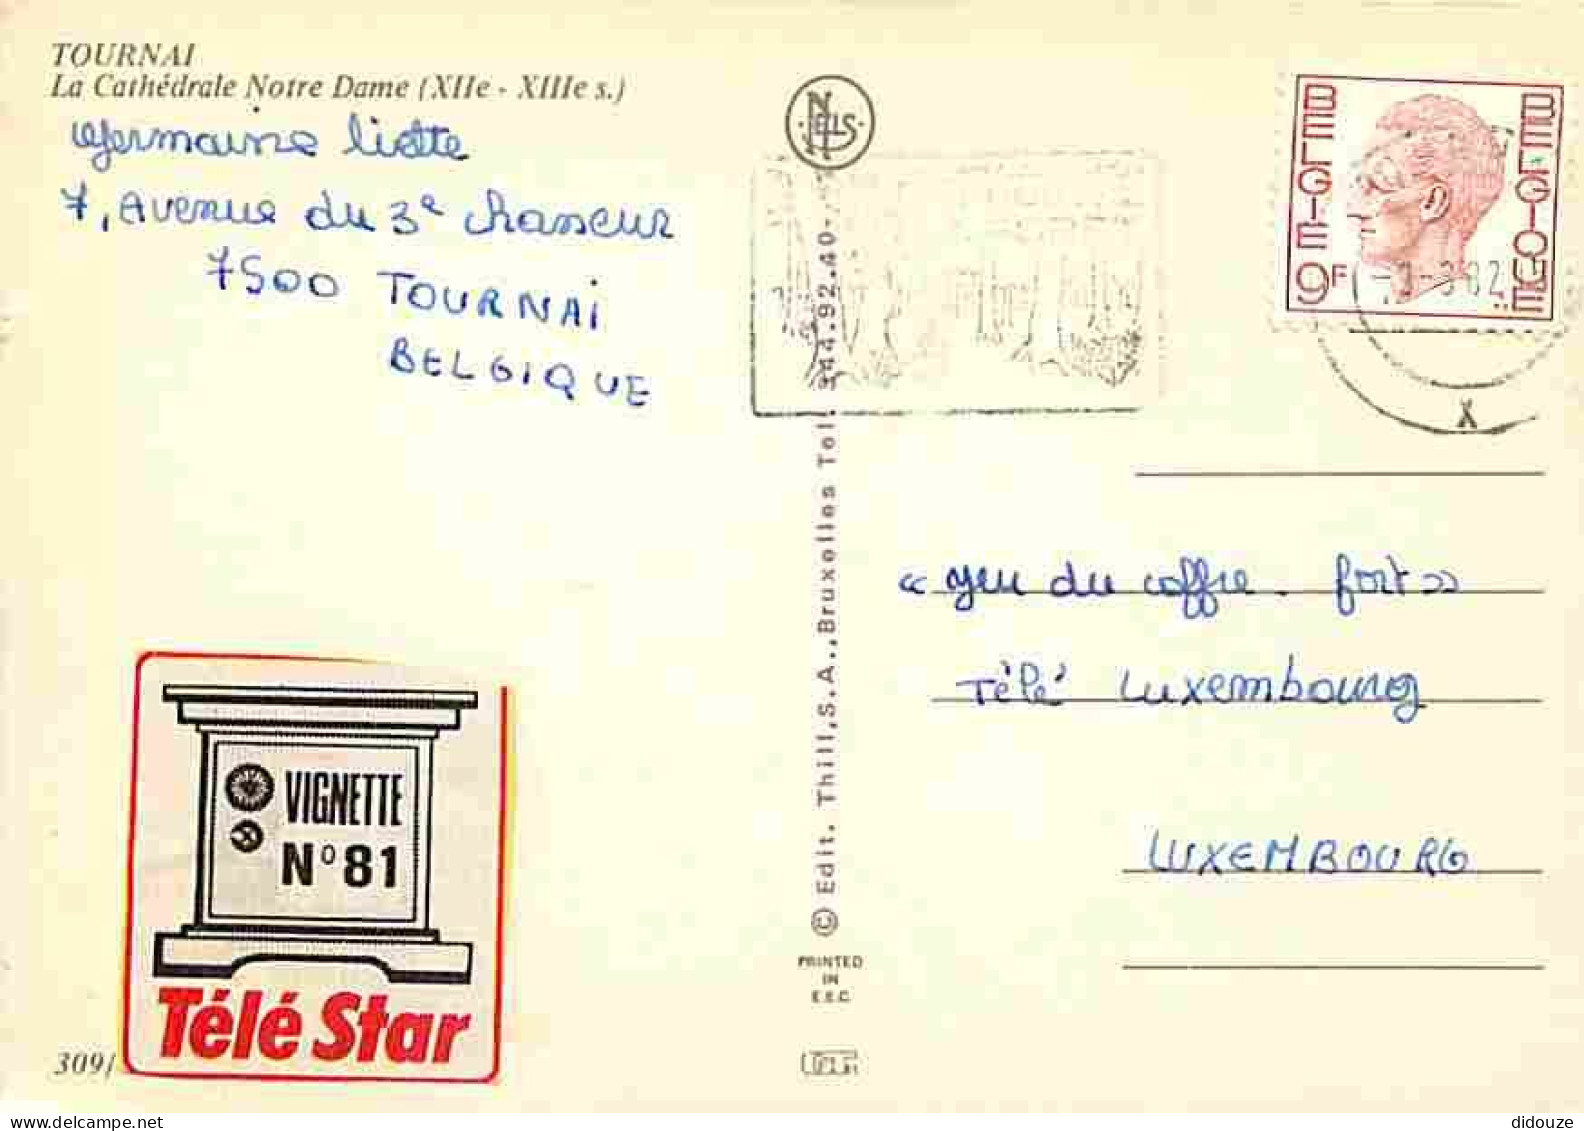 TOURNAI
La Cathédrale Notre Dame (XIIe - XIIIe s.)
Germaine liette
7, Avenue du 3e chasseur
7500 TOURNAI
BELGIQUE
NELS
BELGIE
BELGIQUE
9F
82
X
© Edit. Thill,S.A.,Bruxelles Tel. 344.92.40-
« yeu du coffre. fort »
Télé Luxembourg
LUXEMBOURG
VIGNETTE
N° 81
Télé Star
PRINTED
IN
E.E.C.
309/
didouze